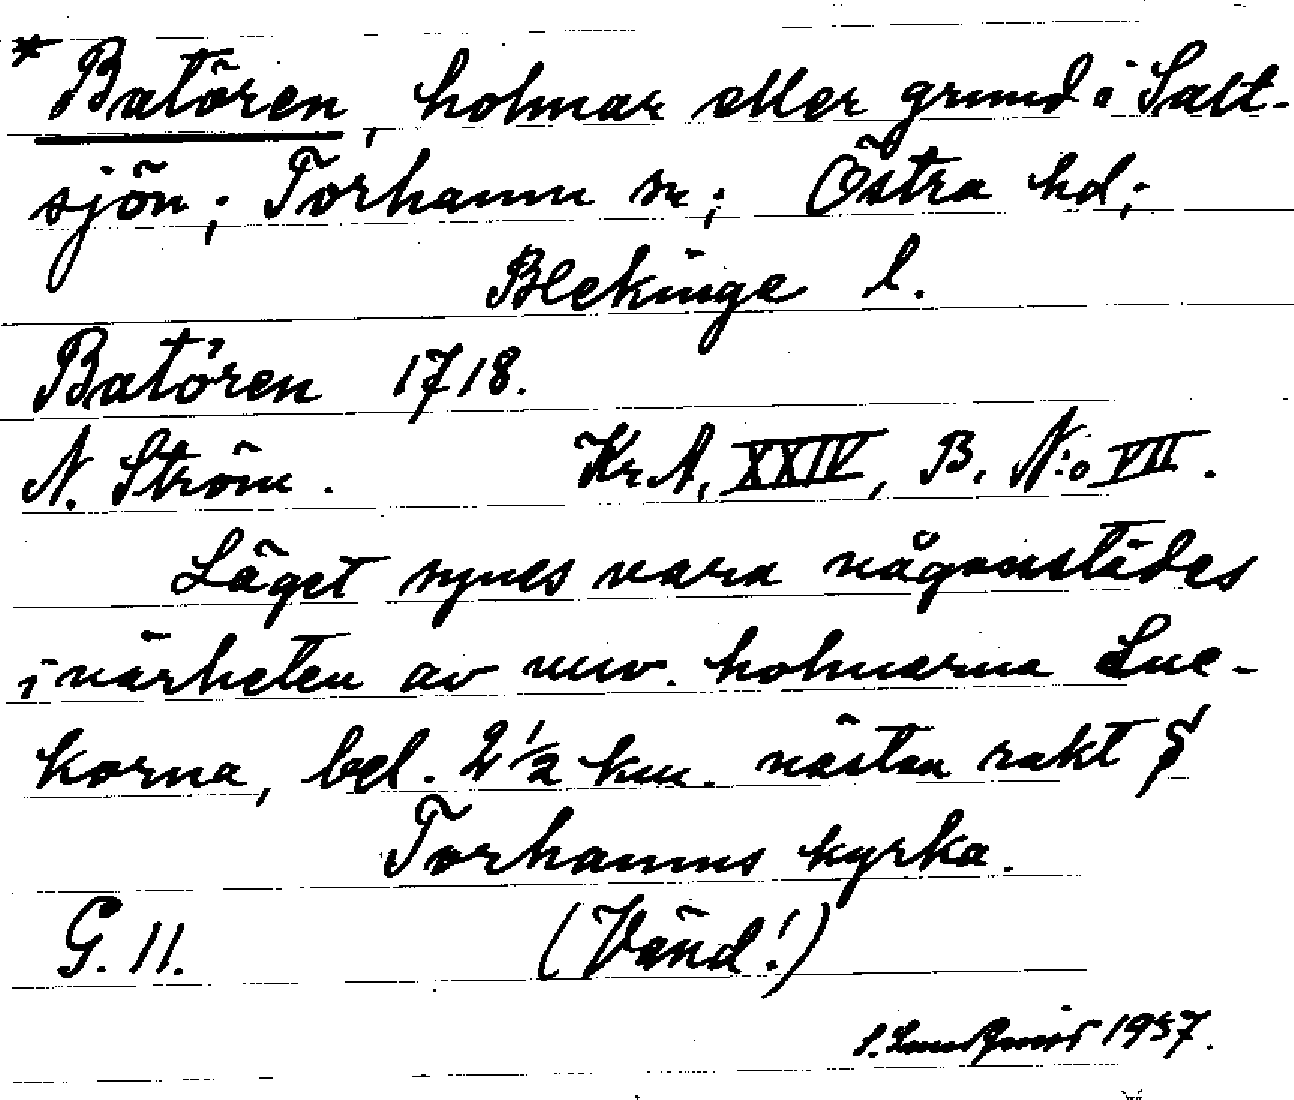 * Batören, holmar eller grund i Salt-
sjön; Torhamn sn; Östra hd;
Blekinge l.
Batören 1718.
N. Ström. Kr.A, XXIV, B. N:o VII.
Läget synes vara någonstädes
i närheten av nuv. holmarna Lue-
korna, bel. 2 1/2 km. nästan rakt S
Torhamns kyrka.
G. 11. (Vänd!)
S. Lundqvist 1937.